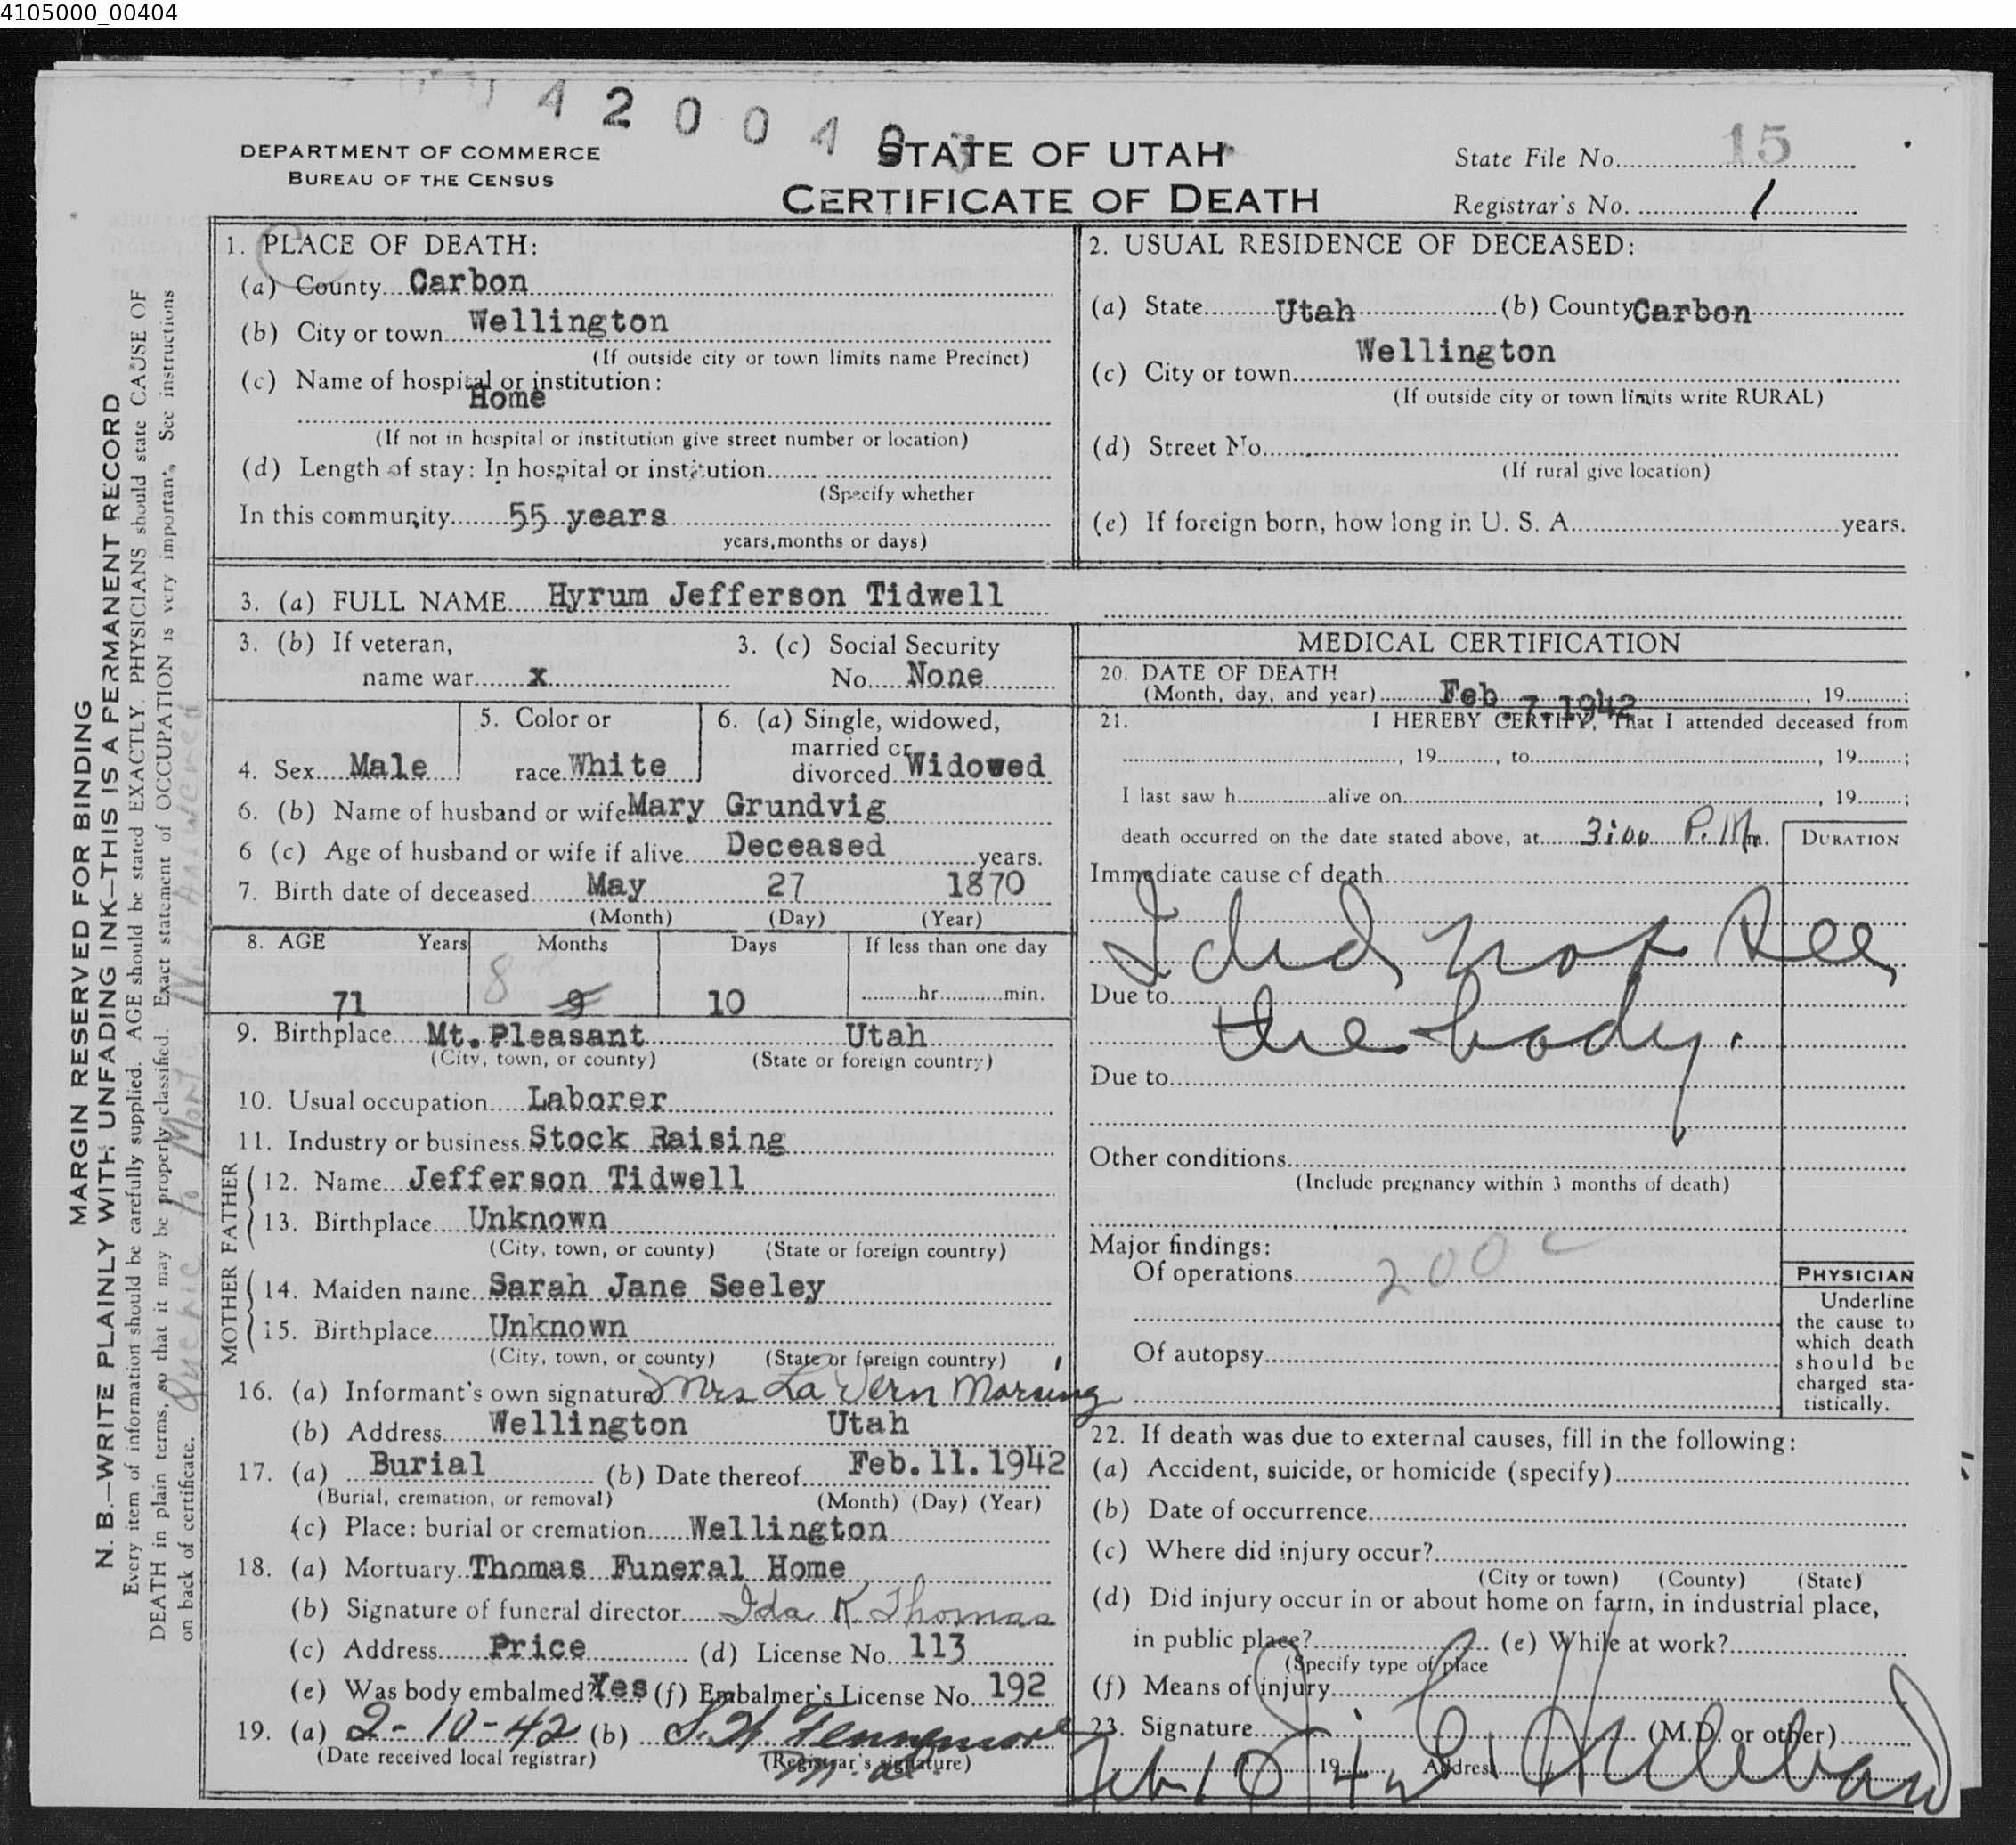 4105000_00404
4 2 0 0 4
DEPARTMENT OF COMMERCE
BUREAU OF THE CENSUS
STATE OF UTAH
CERTIFICATE OF DEATH
State File No. 15
Registrar's No. 1
MARGIN RESERVED FOR BINDING
N. B.—WRITE PLAINLY WITH UNFADING INK—THIS IS A PERMANENT RECORD
Every item of information should be carefully supplied. AGE should be stated EXACTLY. PHYSICIANS should state CAUSE OF
DEATH in plain terms, so that it may be properly classified. Exact statement of OCCUPATION is very important. See instructions
on back of certificate.
1. PLACE OF DEATH:
(a) County Carbon
(b) City or town Wellington
(If outside city or town limits name Precinct)
(c) Name of hospital or institution:
Home
(If not in hospital or institution give street number or location)
(d) Length of stay: In hospital or institution
(Specify whether
In this community 55 years
years, months or days)
2. USUAL RESIDENCE OF DECEASED:
(a) State Utah (b) County Carbon
Wellington
(c) City or town
(If outside city or town limits write RURAL)
(d) Street No.
(If rural give location)
(e) If foreign born, how long in U. S. A. years.
3. (a) FULL NAME Hyrum Jefferson Tidwell
3. (b) If veteran,
name war x
3. (c) Social Security
No. None
4. Sex Male
5. Color or
race White
6. (a) Single, widowed,
married or
divorced Widowed
6. (b) Name of husband or wife Mary Grundvig
6 (c) Age of husband or wife if alive Deceased years.
7. Birth date of deceased May 27 1870
(Month) (Day) (Year)
8. AGE Years Months Days If less than one day
71 8 9 10 hr. min.
9. Birthplace Mt. Pleasant Utah
(City, town, or county) (State or foreign country)
10. Usual occupation Laborer
11. Industry or business Stock Raising
FATHER
12. Name Jefferson Tidwell
13. Birthplace Unknown
(City, town, or county) (State or foreign country)
MOTHER
14. Maiden name Sarah Jane Seeley
15. Birthplace Unknown
(City, town, or county) (State or foreign country)
16. (a) Informant's own signature Mrs La Vern Marsing
(b) Address Wellington Utah
17. (a) Burial (b) Date thereof Feb. 11. 1942
(Burial, cremation, or removal) (Month) (Day) (Year)
(c) Place: burial or cremation Wellington
18. (a) Mortuary Thomas Funeral Home
(b) Signature of funeral director Ida K. Thomas
(c) Address Price (d) License No. 113
(e) Was body embalmed? Yes (f) Embalmer's License No. 192
19. (a) 2-10-42 (b)
(Date received local registrar) (Registrar's signature)
MEDICAL CERTIFICATION
20. DATE OF DEATH
(Month, day, and year) Feb. 7. 1942, 19 ;
21. I HEREBY CERTIFY, That I attended deceased from
, 19 , to , 19 ;
I last saw h alive on , 19 ;
death occurred on the date stated above, at 3:00 P.M m.
DURATION
Immediate cause of death
I did not see
Due to
the body.
Due to
Other conditions
(Include pregnancy within 3 months of death)
Major findings:
Of operations 200 c
Of autopsy
PHYSICIAN
Underline
the cause to
which death
should be
charged sta-
tistically.
22. If death was due to external causes, fill in the following:
(a) Accident, suicide, or homicide (specify)
(b) Date of occurrence
(c) Where did injury occur?
(City or town) (County) (State)
(d) Did injury occur in or about home on farm, in industrial place,
in public place? (e) While at work?
(Specify type of place
(f) Means of injury
23. Signature (M.D. or other)
Feb 10 1942 Address